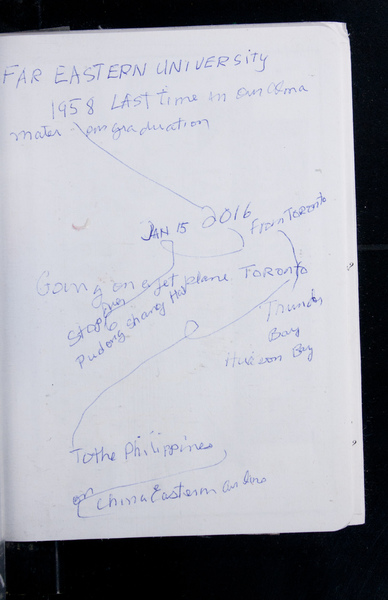 FAR EASTERN UNIVERSITY
1958 LAST time in our alma
mater - on graduation
JAN 15 2016
From TORONTO
Going on a jet plane. TORONTO
Stop over
to
Pudong, Shang Hai
Thunder
Bay
Hudson Bay
To the Philippines
China Eastern Airline